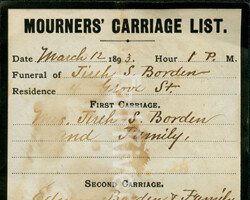 MOURNERS' CARRIAGE LIST.
Date March 12 1893. Hour 1 P. M.
Funeral of S. Borden
Residence Grove St.
FIRST CARRIAGE.
Mrs. S. Borden
and Family,
SECOND CARRIAGE.
Borden & Family